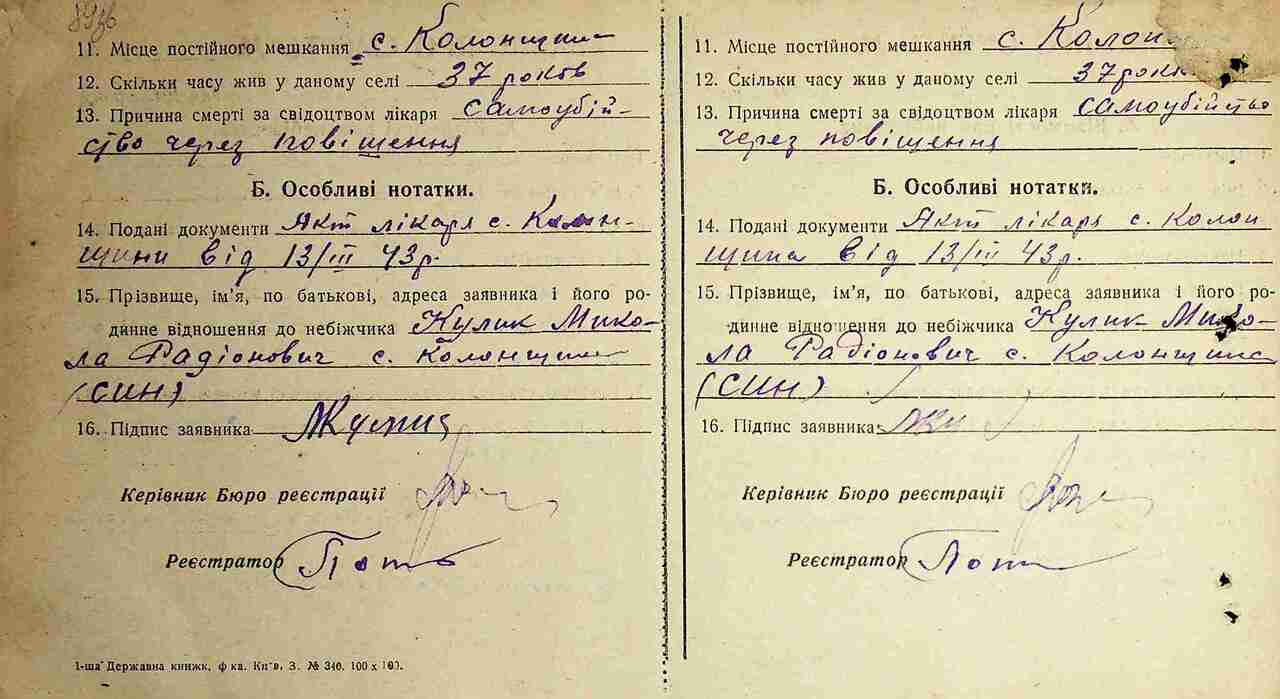 11. Місце постійного мешкання с. Колонщина
12. Скільки часу жив у даному селі 37 років
13. Причина смерті за свідоцтвом лікаря самоубій-
ство через повішення
Б. Особливі нотатки.
14. Подані документи Акт лікаря с. Колон-
щини від 13/III 43 р.
15. Прізвище, ім'я, по батькові, адреса заявника і його ро-
динне відношення до небіжчика Кулик Мико-
ла Радіонович с. Колонщина
(син)
16. Підпис заявника
Керівник Бюро реєстрації
Реєстратор
1-ша Державна книжк. ф-ка. Київ, З. № 340. 100 x 100.
11. Місце постійного мешкання с. Колон
12. Скільки часу жив у даному селі 37 років
13. Причина смерті за свідоцтвом лікаря самоубійство
через повішення
Б. Особливі нотатки.
14. Подані документи Акт лікаря с. Колон
щина від 13/III 43 р.
15. Прізвище, ім'я, по батькові, адреса заявника і його ро-
динне відношення до небіжчика Кулик Мико-
ла Радіонович с. Колонщина
(син)
16. Підпис заявника
Керівник Бюро реєстрації
Реєстратор